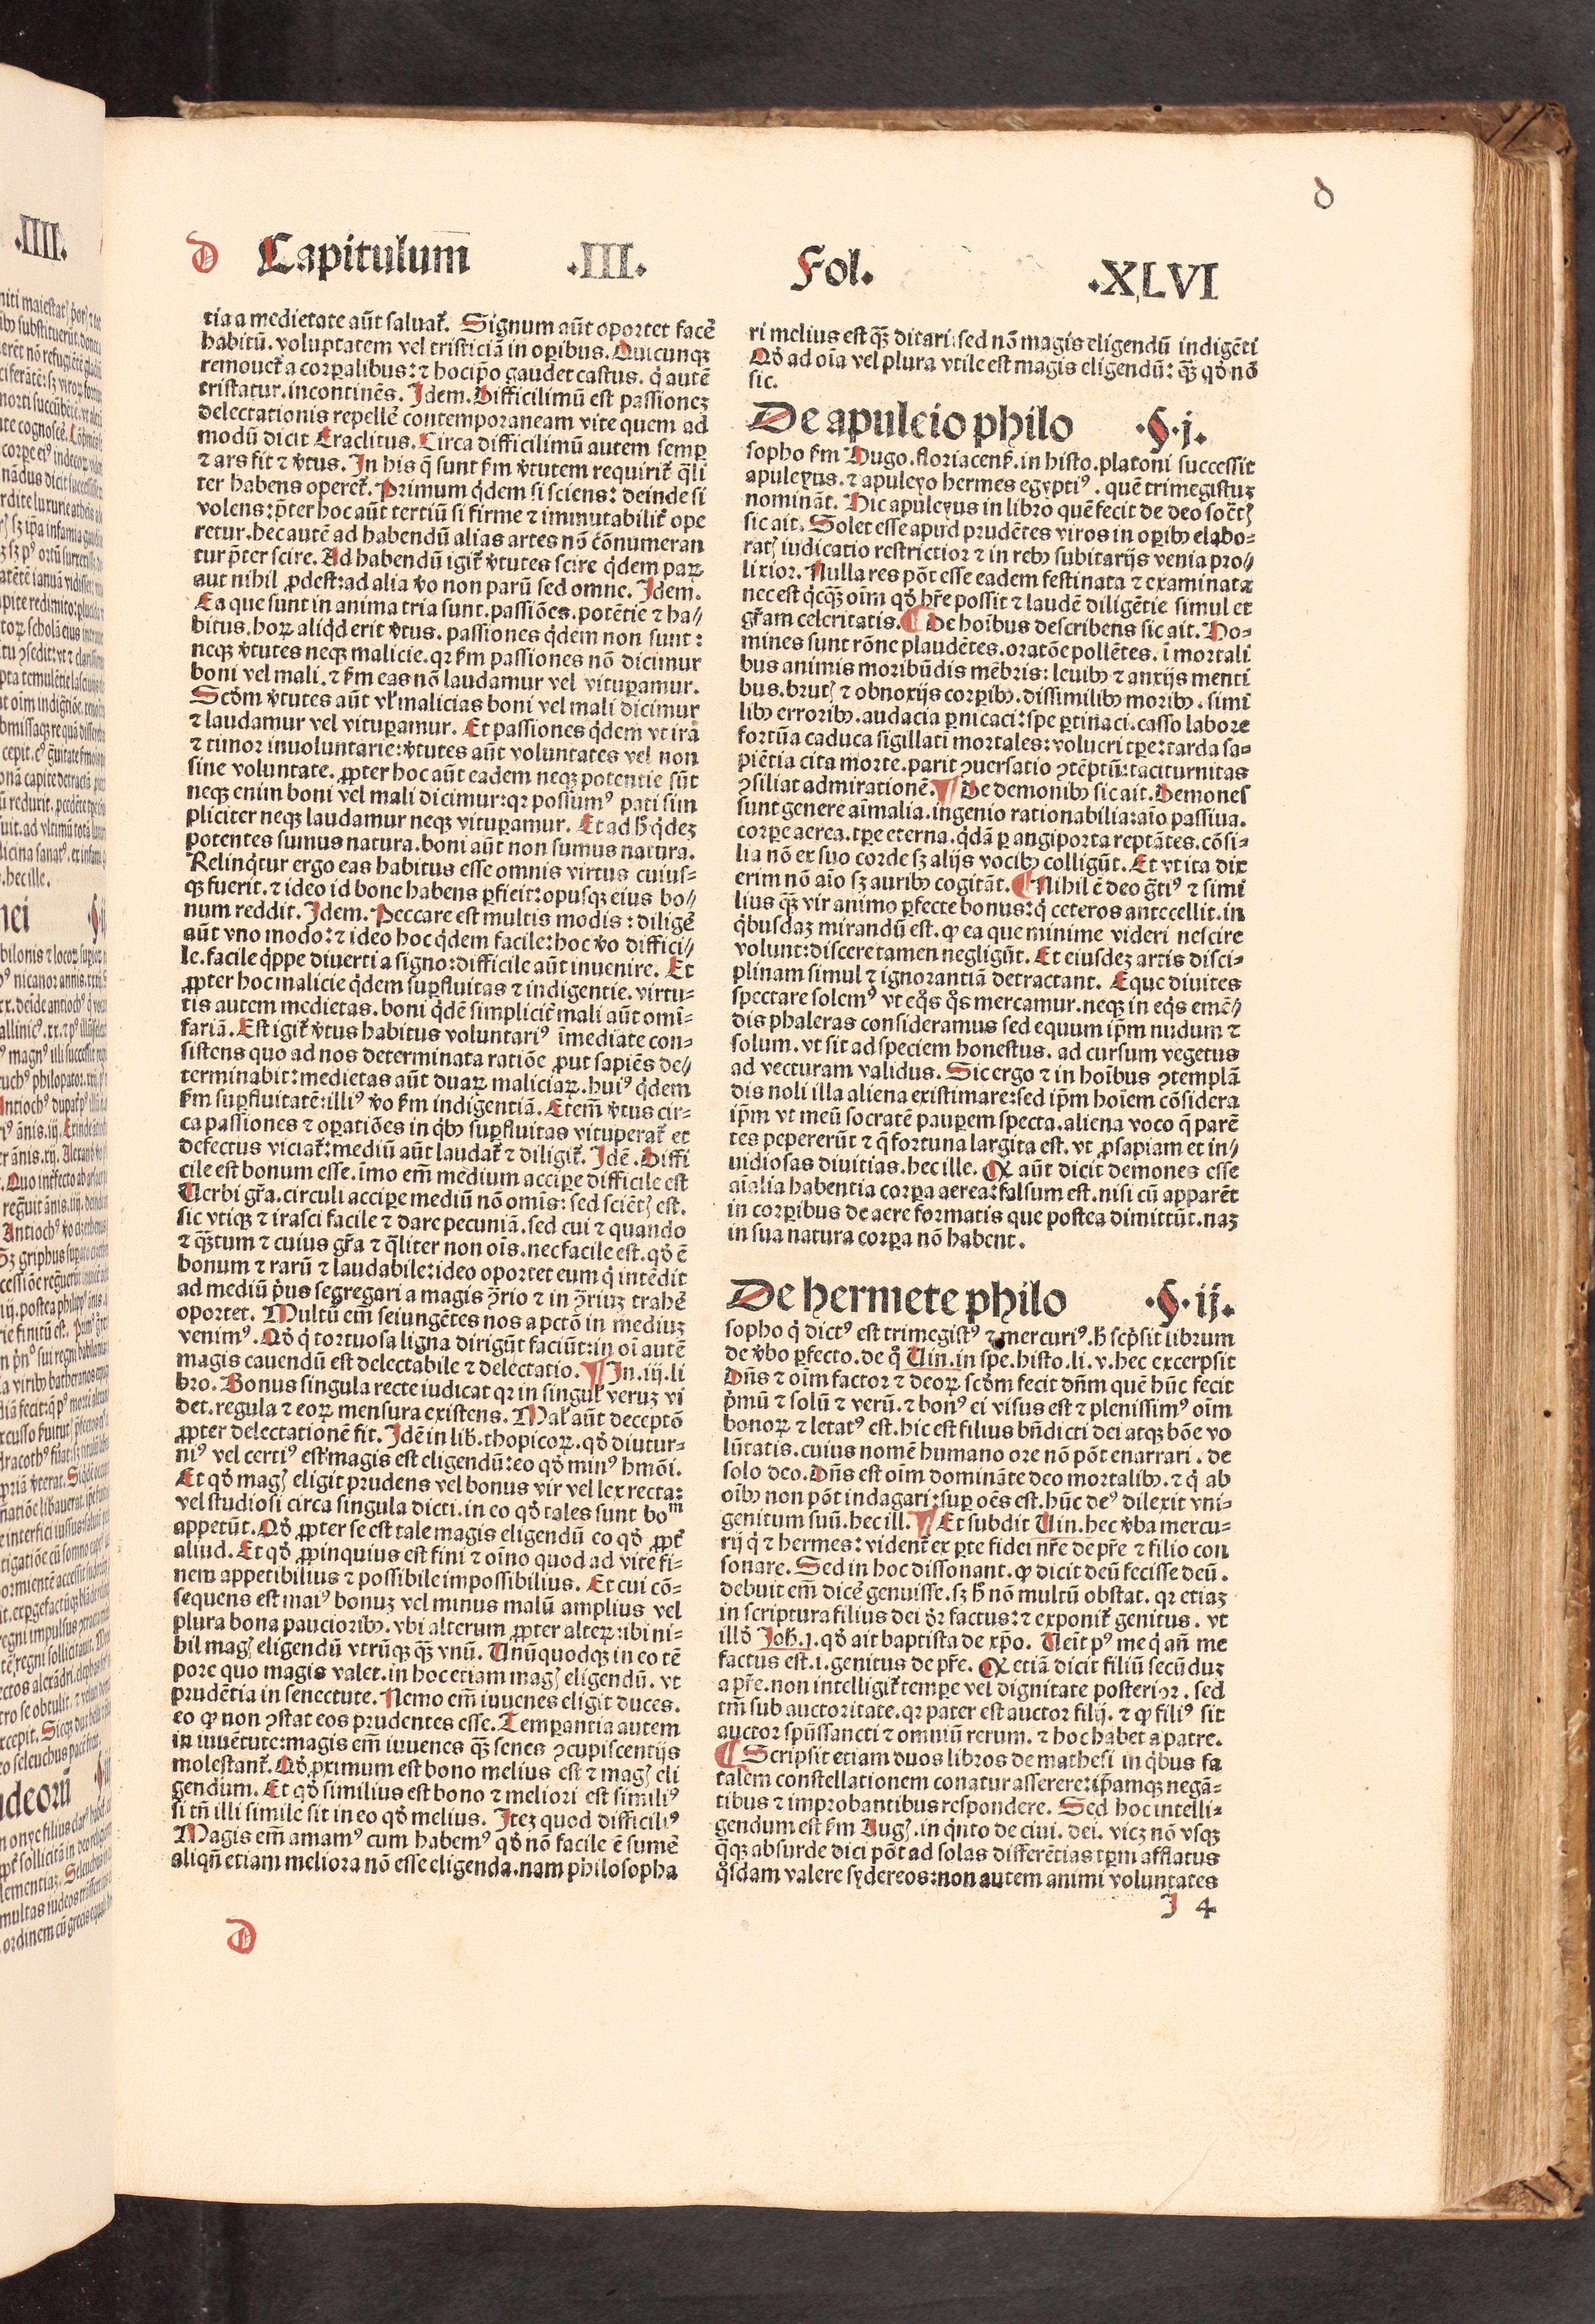 Capitulum .III. Fol. .XLVI
tia a medietate aūt saluat᷑. Signum aūt oportet facē
habitū. voluptatem vel tristiciā in oꝑibus. Quicunqꝫ
remouet᷑ a corꝑalibus: ⁊ hoc ip̄o gaudet castus. q̇ autē
tristatur. incontinēs. Idem. Difficilimū est passionez
delectationis repellē contemporaneam vite quem ad
modū dicit Eraclitus. Circa difficilimū autem semꝑ
⁊ ars fit ⁊ v̾tus. In his q̄ sunt ẜm v̾tutem requirit᷑ q̄li
ter habens operet᷑. Primum q̇dem si sciens: deinde si
volens: p̄ter hoc aūt tertiū si firme ⁊ immutabilit᷑ ope
retur. hec autē ad habendū alias artes nō cōnumeran
tur p̄ter scire. Ad habendū igit᷑ v̾tutes scire q̇dem parꝫ
aut nihil ꝓdest: ad alia v̾o non parū sed omne. Idem.
Ea que sunt in anima tria sunt. passiōes. potētie ⁊ ha//
bitus. hoꝝ aliq̇d erit v̾tus. passiones q̇dem non sunt:
neqꝫ v̾tutes neqꝫ malicie. qꝛ ẜm passiones nō dicimur
boni vel mali. ⁊ ẜm eas nō laudamur vel vituꝑamur.
Scdm v̾tutes aūt vl᷑ malicias boni vel mali dicimur
⁊ laudamur vel vituꝑamur. Et passiones q̇dem vt ira
⁊ timor inuoluntarie: v̾tutes aūt voluntates vel non
sine voluntate. ꝓpter hoc aūt eadem neqꝫ potentie sūt
neqꝫ enim boni vel mali dicimur: qꝛ possumꝰ pati sim
pliciter neqꝫ laudamur neqꝫ vituꝑamur. Et ad h̄ q̇dez
potentes sumus natura. boni aūt non sumus natura.
Relinq̇tur ergo eas habitus esse omnis virtus cuius-
qꝫ fuerit. ⁊ ideo id bone habens ꝑfieit: opusqꝫ eius bo//
num reddit. Idem. Peccare est multis modis: diligē
aūt vno modo: ⁊ ideo hoc q̇dem facile: hoc v̾o diffici//
le. facile q̇ppe diuerti a signo: difficile aūt inuenire. Et
ꝓpter hoc malicie q̇dem suꝑfluitas ⁊ indigentie. virtu-
tis autem medietas. boni q̇dē simplicit᷑ mali aūt omi-
fariā. Est igit᷑ v̾tus habitus voluntariꝰ īmediate con-
sistens quo ad nos determinata ratiōe ꝓut sapiēs de//
terminabit: medietas aūt duaꝝ maliciaꝝ. huiꝰ q̇dem
ẜm suꝑfluitatē: illiꝰ v̾o ẜm indigentiā. Etem̄ v̾tus cir-
ca passiones ⁊ oꝑatiōes in q̇bꝫ suꝑfluitas vituperat᷑ et
defectus viciat᷑: mediū aūt laudat᷑ ⁊ diligit᷑. Idē. Diffi
cile est bonum esse. īmo em̄ medium acciꝑe difficile est
Uerbi gr̄a. circuli acciꝑe mediū nō omīs: sed sciētꝭ est.
sic vtiqꝫ ⁊ irasci facile ⁊ dare pecuniā. sed cui ⁊ quando
⁊ qꝫ̄tum ⁊ cuius gr̄a ⁊ q̄liter non oīs. nec facile est. qḋ ē
bonum ⁊ rarū ⁊ laudabile: ideo oportet eum q̇ intēdit
ad mediū ṗus segregari a magis ꝯ̄rio ⁊ in ꝯ̄riuz trahē
oportet. Multū em̄ seiungētes nos a pctō in mediuz
venimꝰ. Qḋ q̇ tortuosa ligna dirigūt faciūt: in oī autē
magis cauendū est delectabile ⁊ delectatio. ¶ In. iij. li
bro. Bonus singula recte iudicat qꝛ in singul᷑ veruz vi
det. regula ⁊ eoꝝ mensura existens. Mal᷑ aūt deceptō
ꝓpter delectationē fit. Idē in lib̄. thopicoꝝ. qḋ diutur-
niꝰ vel certiꝰ est: magis est eligendū: eo qḋ minꝰ hmōi.
Et qḋ magꝭ eligit prudens vel bonus vir vel lex recta:
vel studiosi circa singula dicti. in eo qḋ tales sunt boᵐ
appetūt. Qḋ ꝓpter se est tale magis eligendū eo qḋ ꝓpt᷑
aliud. Et qḋ ꝓpinquius est fini ⁊ oīno quod ad vite fi-
nem appetibilius ⁊ possibile impossibilius. Et cui cō-
sequens est maiꝰ bonuz vel minus malū amplius vel
plura bona paucioribꝫ. vbi alterum ꝓpter alterꝝ: ibi ni-
hil magꝭ eligendū vtrūqꝫ qꝫ̄ vnū. Unūquodqꝫ in eo tē
pore quo magis valet. in hoc etiam magꝭ eligendū. vt
prudētia in senectute. Nemo em̄ iuuenes eligit duces.
eo ꝙ non ꝯstat eos prudentes esse. Temꝑantia autem
in iuuētute: magis em̄ iuuenes qꝫ̄ senes ꝯcupiscentijs
molestant᷑. Qḋ ꝓximum est bono melius est ⁊ magꝭ eli
gendum. Et qḋ similius est bono ⁊ meliori est similiꝰ
si tn̄ illi simile sit in eo qḋ melius. Itez quod difficiliꝰ
Magis em̄ amamꝰ cum habemꝰ qḋ nō facile ē sumē
aliqn̄ etiam meliora nō esse eligenda. nam philosopha
ri melius est qꝫ̄ ditari: sed nō magis eligendū indigēti
Qḋ ad oīa vel plura vtile est magis eligendū: qꝫ̄ qḋ nō
sic.
De apuleio philo .§.j.
sopho ẜm Hugo. floriacenẜ. in histo. platoni successit
apuleyus. ⁊ apuleyo hermes egyptiꝰ. quē trimegistuz
nomināt. Hic apuleyus in libro quē fecit de deo socr̄tꝭ
sic ait. Solet esse apud prudētes viros in oꝑibꝫ elabo-
ratꝭ iudicatio restrictior ⁊ in rebꝫ subitarijs venia pro//
lixior. Nulla res pōt esse eadem festinata ⁊ examinata
nec est q̇cqꝫ̄ oīm qḋ hr̄e possit ⁊ laudē diligētie simul et
gr̄am celeritatis. ¶ De hoībus describens sic ait. Ho-
mines sunt rōne plaudētes. oratōe pollētes. ī mortali
bus animis moribūdis mēbris: leuibꝫ ⁊ anxijs menti
bus. brutꝭ ⁊ obnoxijs corꝑibꝫ. dissimilibꝫ moribꝫ. simi
libꝫ erroribꝫ. audacia ꝑnicaci: spe ꝑtinaci. casso labore
fortūa caduca sigillati mortales: volucri tꝑe: tarda sa-
piētia cita morte. parit ꝯuersatio ꝯtēptū: taciturnitas
ꝯsiliat admirationē. ¶ De demonibꝫ sic ait. Demones
sunt genere aīmalia. ingenio rationabilia: aīo passiua.
corꝑe aerea. tꝑe eterna. q̇dā ꝑ angiporta reptātes. cōsi-
lia nō ex suo corde sꝫ alijs vocibꝫ colligūt. Et vt ita dix
erim nō aīo sꝫ auribꝫ cogitāt. ¶ Nihil ē deo gr̄tiꝰ ⁊ simi
lius qꝫ̄ vir animo ꝑfecte bonus: q̇ ceteros antecellit. in
q̇busdaz mirandū est. ꝙ ea que minime videri nescire
volunt: discere tamen negligūt. Et eiusdez artis disci-
plinam simul ⁊ ignorantiā detractant. Eque diuites
spectare solemꝰ vt eq̊s q̊s mercamur. neqꝫ in eq̇s emē//
dis phaleras consideramus sed equum ip̄m nudum ⁊
solum. vt sit ad speciem honestus. ad cursum vegetus
ad vecturam validus. Sic ergo ⁊ in hoībus ꝯtemplā
dis noli illa aliena existimare: sed ip̄m hoīem cōsidera
ip̄m vt meū socratē pauꝑem specta. aliena voco q̄ parē
tes pepererūt ⁊ q̄ fortuna largita est. vt ꝓsapiam et in//
uidiosas diuitias. hec ille. Qꝫ aūt dicit demones esse
aīalia habentia corꝑa aerea: falsum est. nisi cū apparēt
in corꝑibus de aere formatis que postea dimittūt. naz
in sua natura corꝑa nō habent.
De hermete philo .§.ij.
sopho q̇ dictꝰ est trimegistꝰ ⁊ mercuriꝰ. h̄ scp̄sit librum
de v̾bo ꝑfecto. de q̊ Uin. in spe. histo. li. v. hec excerpsit
Dn̄s ⁊ oīm factor ⁊ deoꝝ scdm fecit dn̄m quē hūc fecit
p̄mū ⁊ solū ⁊ verū. ⁊ bonꝰ ei visus est ⁊ plenissimꝰ oīm
bonoꝝ ⁊ letatꝰ est. hic est filius bn̄dicti dei atqꝫ bōe vo
lūtatis. cuius nomē humano ore nō pōt enarrari. de
solo deo. Dn̄s est oīm domināte deo mortalibꝫ. ⁊ q̇ ab
oībꝫ non pōt indagari: suꝑ oēs est. hūc deꝰ dilexit vni-
genitum suū. hec ill. ¶ Et subdit Uin. hec v̾ba mercu-
rij q̇ ⁊ hermes: vident᷑ ex ꝑte fidei nr̄e de pr̄e ⁊ filio con
sonare. Sed in hoc dissonant. ꝙ dicit deū fecisse deū.
debuit em̄ dicē genuisse. sꝫ h̄ nō multū obstat. qꝛ etiaz
in scriptura filius dei dr̄ factus: ⁊ exponit᷑ genitus. vt
illḋ Joh̄. j. qḋ ait baptista de xp̄o. Ueīt pꝰ me q̇ an̄ me
factus est. i. genitus de pr̄e. Qꝫ etiā dicit filiū secūduz
a pr̄e. non intelligit᷑ tempe vel dignitate posterior. sed
tm̄ sub auctoritate. qꝛ pater est auctor filij. ⁊ ꝙ filiꝰ sit
auctor spūssancti ⁊ omniū rerum. ⁊ hoc habet a patre.
¶ Scripsit etiam duos libros de mathesi in q̇bus fa
talem constellationem conatur asserere: ip̄amqꝫ negā-
tibus ⁊ improbantibus respondere. Sed hoc intelli-
gendum est ẜm Augꝭ. in q̇nto de ciui. dei. vicz nō vsqꝫ
q̄qꝫ absurde dici pōt ad solas differētias tꝑm afflatus
q̊sdam valere sydereos: non autem animi voluntates
J 4